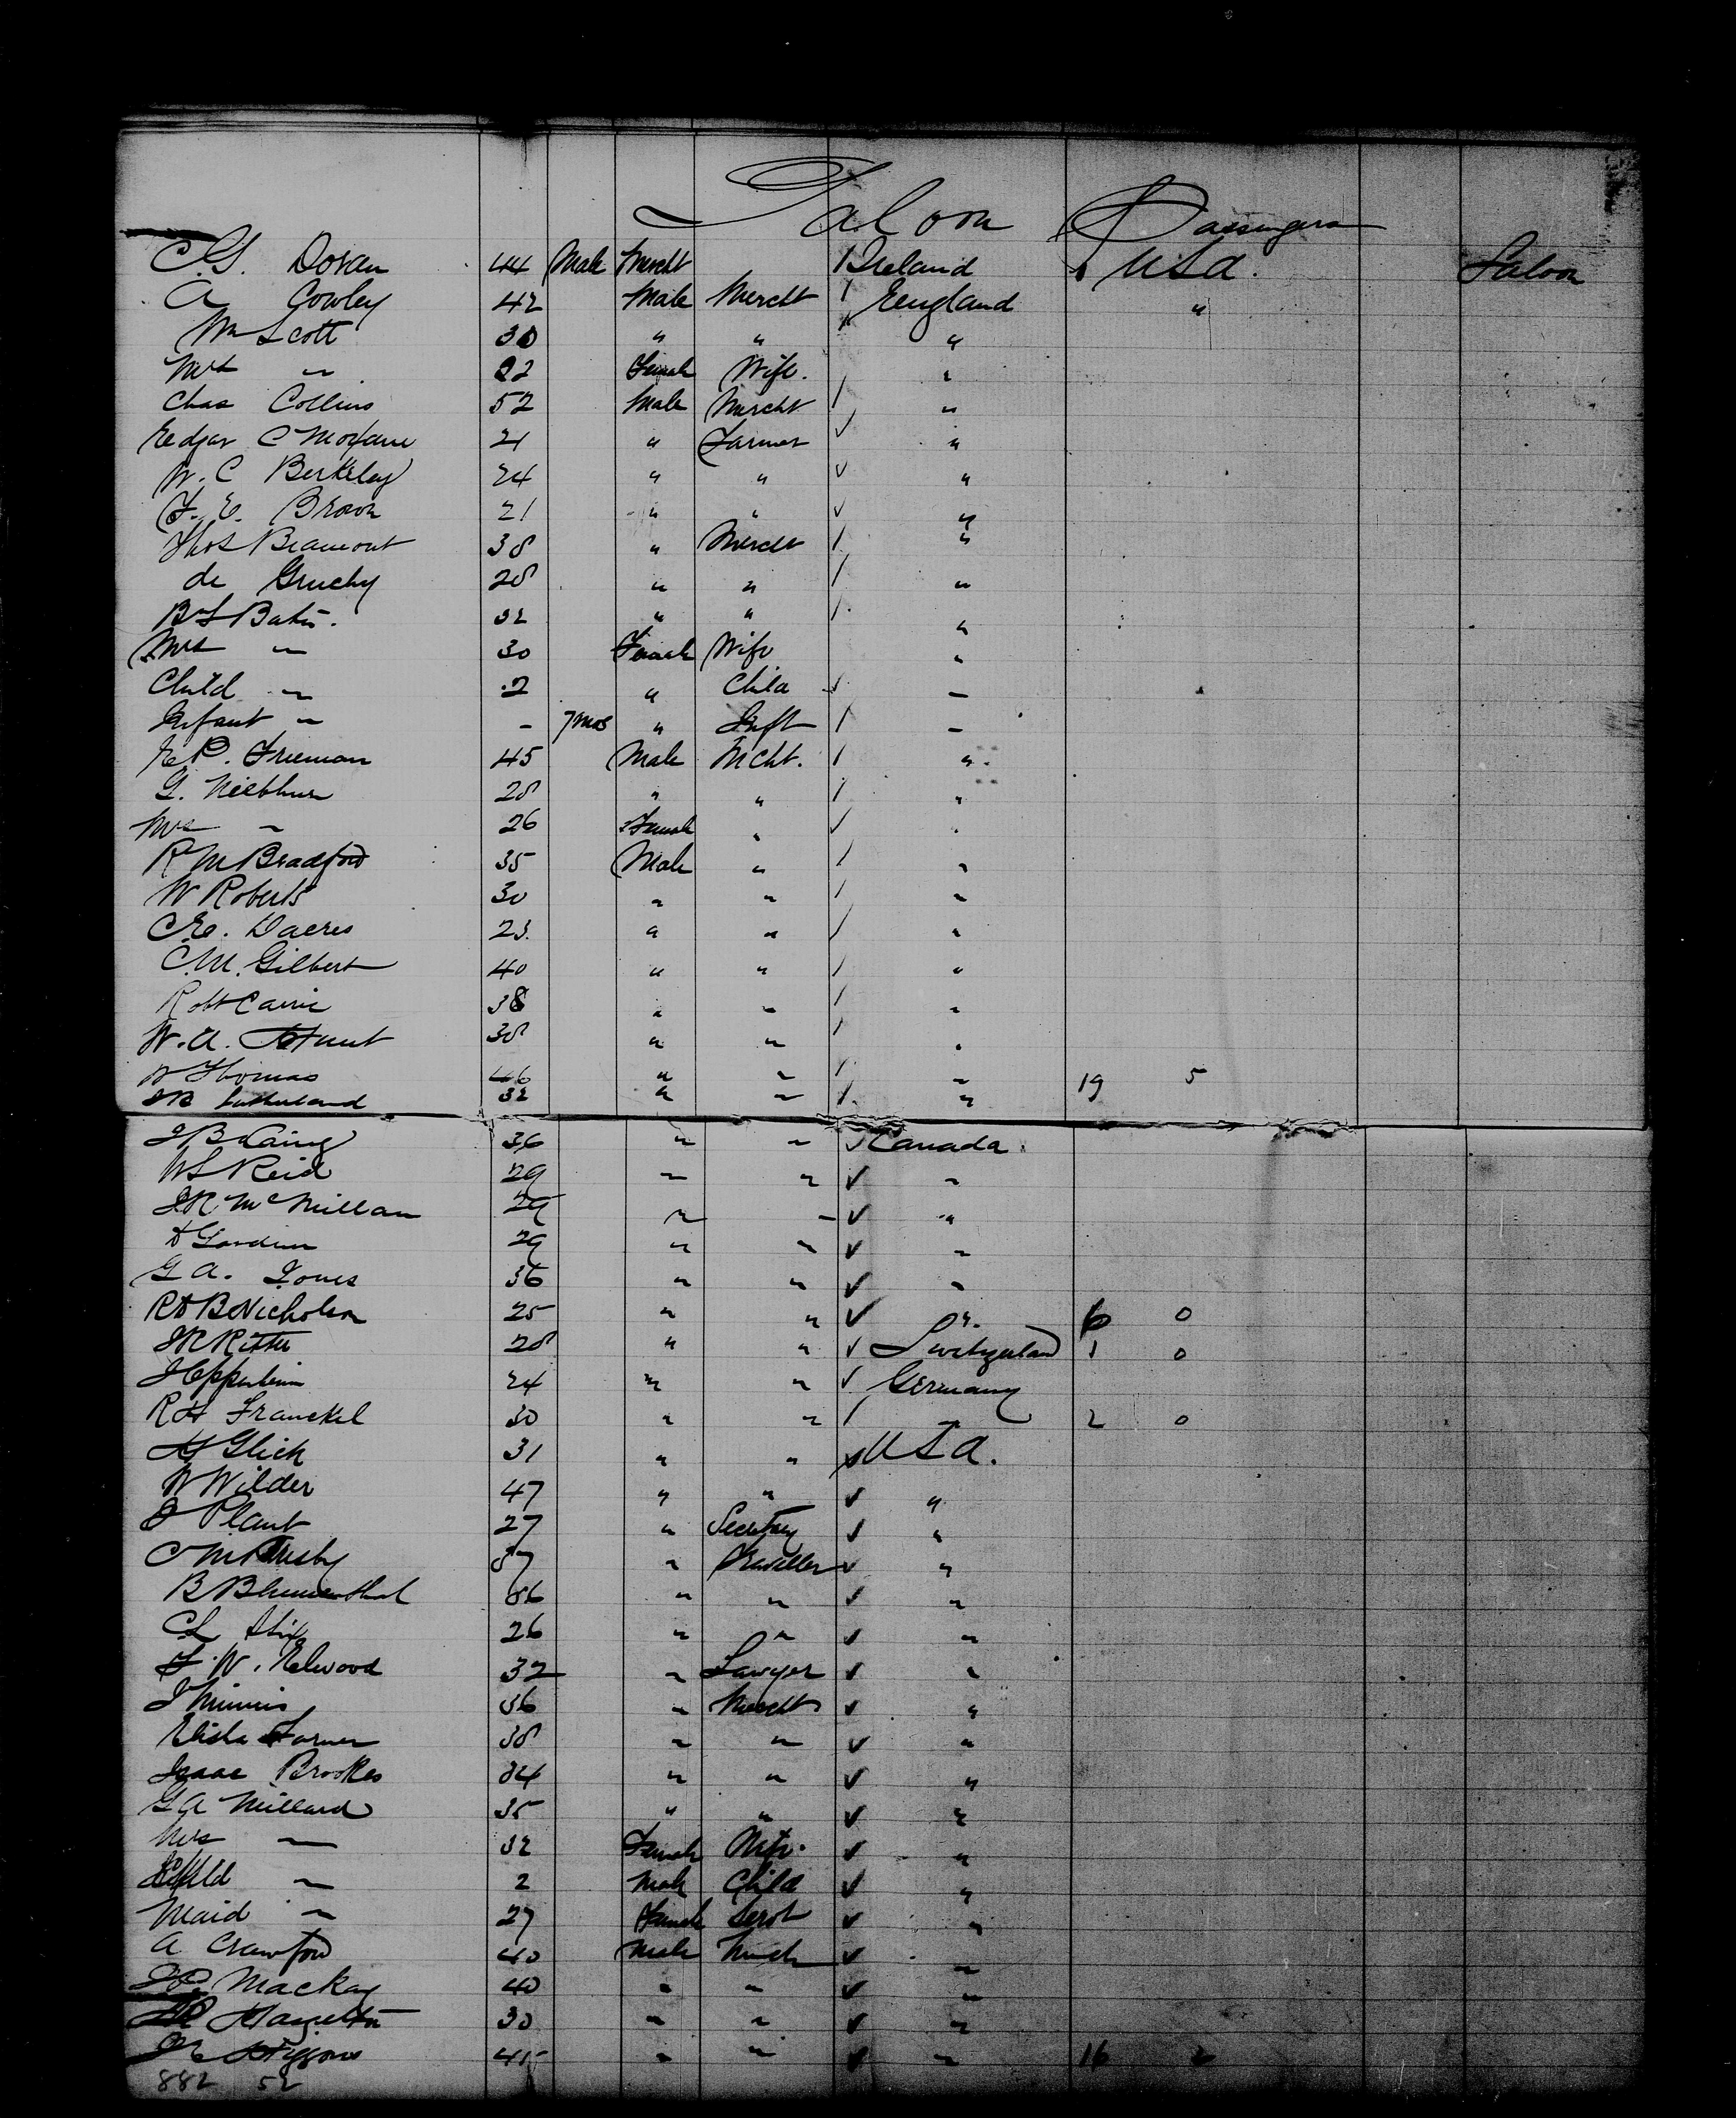 Saloon Passengers
C.G. Doran 44 Male Mercht / Ireland USA. Saloon
A Cowley 42 Male Mercht / England "
Wm Scott 30 " " "
Mrs " 22 Female Wife. "
Chas Collins 52 Male Mercht / "
Edgar C 21 " Farmer ✓ "
W. C Berkeley 24 " " ✓ "
F. E. Brown 21 " " ✓ "
Thos Beamont 38 " Mercht / "
de Gruchy 28 " " / "
B Bates. 32 " " / "
Mrs " 30 Female Wife "
Child " 2 " Child ✓ "
Infant " - 7 mos " Inft / "
E P. Frieman 45 Male Mcht. / "
G. Niebhur 28 " " / "
Mrs " 26 Female " ✓ "
R M Bradford 35 Male " / "
W Roberts 30 " " / "
C E. Dacres 23 " " / "
C. M. Gilbert 40 " " / "
Robt Carrie 38 " " / "
W. A. Hunt 38 " " / "
Thomas 46 " " / " 19 5
Sutherland 32 " " / "
J B Laing 36 " " ✓ Canada
W S Reid 29 " " ✓ "
J R McMillan 29 " " ✓ "
29 " " ✓ "
G A. Jones 36 " " ✓ "
R B Nicholson 25 " " ✓ " 6 0
J R Ritter 28 " " ✓ Switzerland 1 0
24 " " ✓ Germany
R H Franckel 30 " " / " 2 0
H Glick 31 " " ✓ USA.
W Wilder 47 " " ✓ "
J Plant 27 " Secretary ✓ "
C M 37 " Traveller ✓ "
B Blumenthal 36 " " ✓ "
C L Stix 26 " " ✓ "
F. W. Elwood 32 " Lawyer ✓ "
J 36 " Mercht ✓ "
Elisha Farmer 38 " " ✓ "
Isaac Brookes 34 " " ✓ "
G A Millard 35 " " ✓ "
Mrs " 32 Female Wife. ✓ "
Child " 2 Male Child ✓ "
Maid " 27 Female Servt ✓ "
A Crawford 40 Male Merch ✓ "
Mackay 40 " " ✓ "
Hamilton 30 " " ✓ "
Higgins 45 " " ✓ " 16
882 52